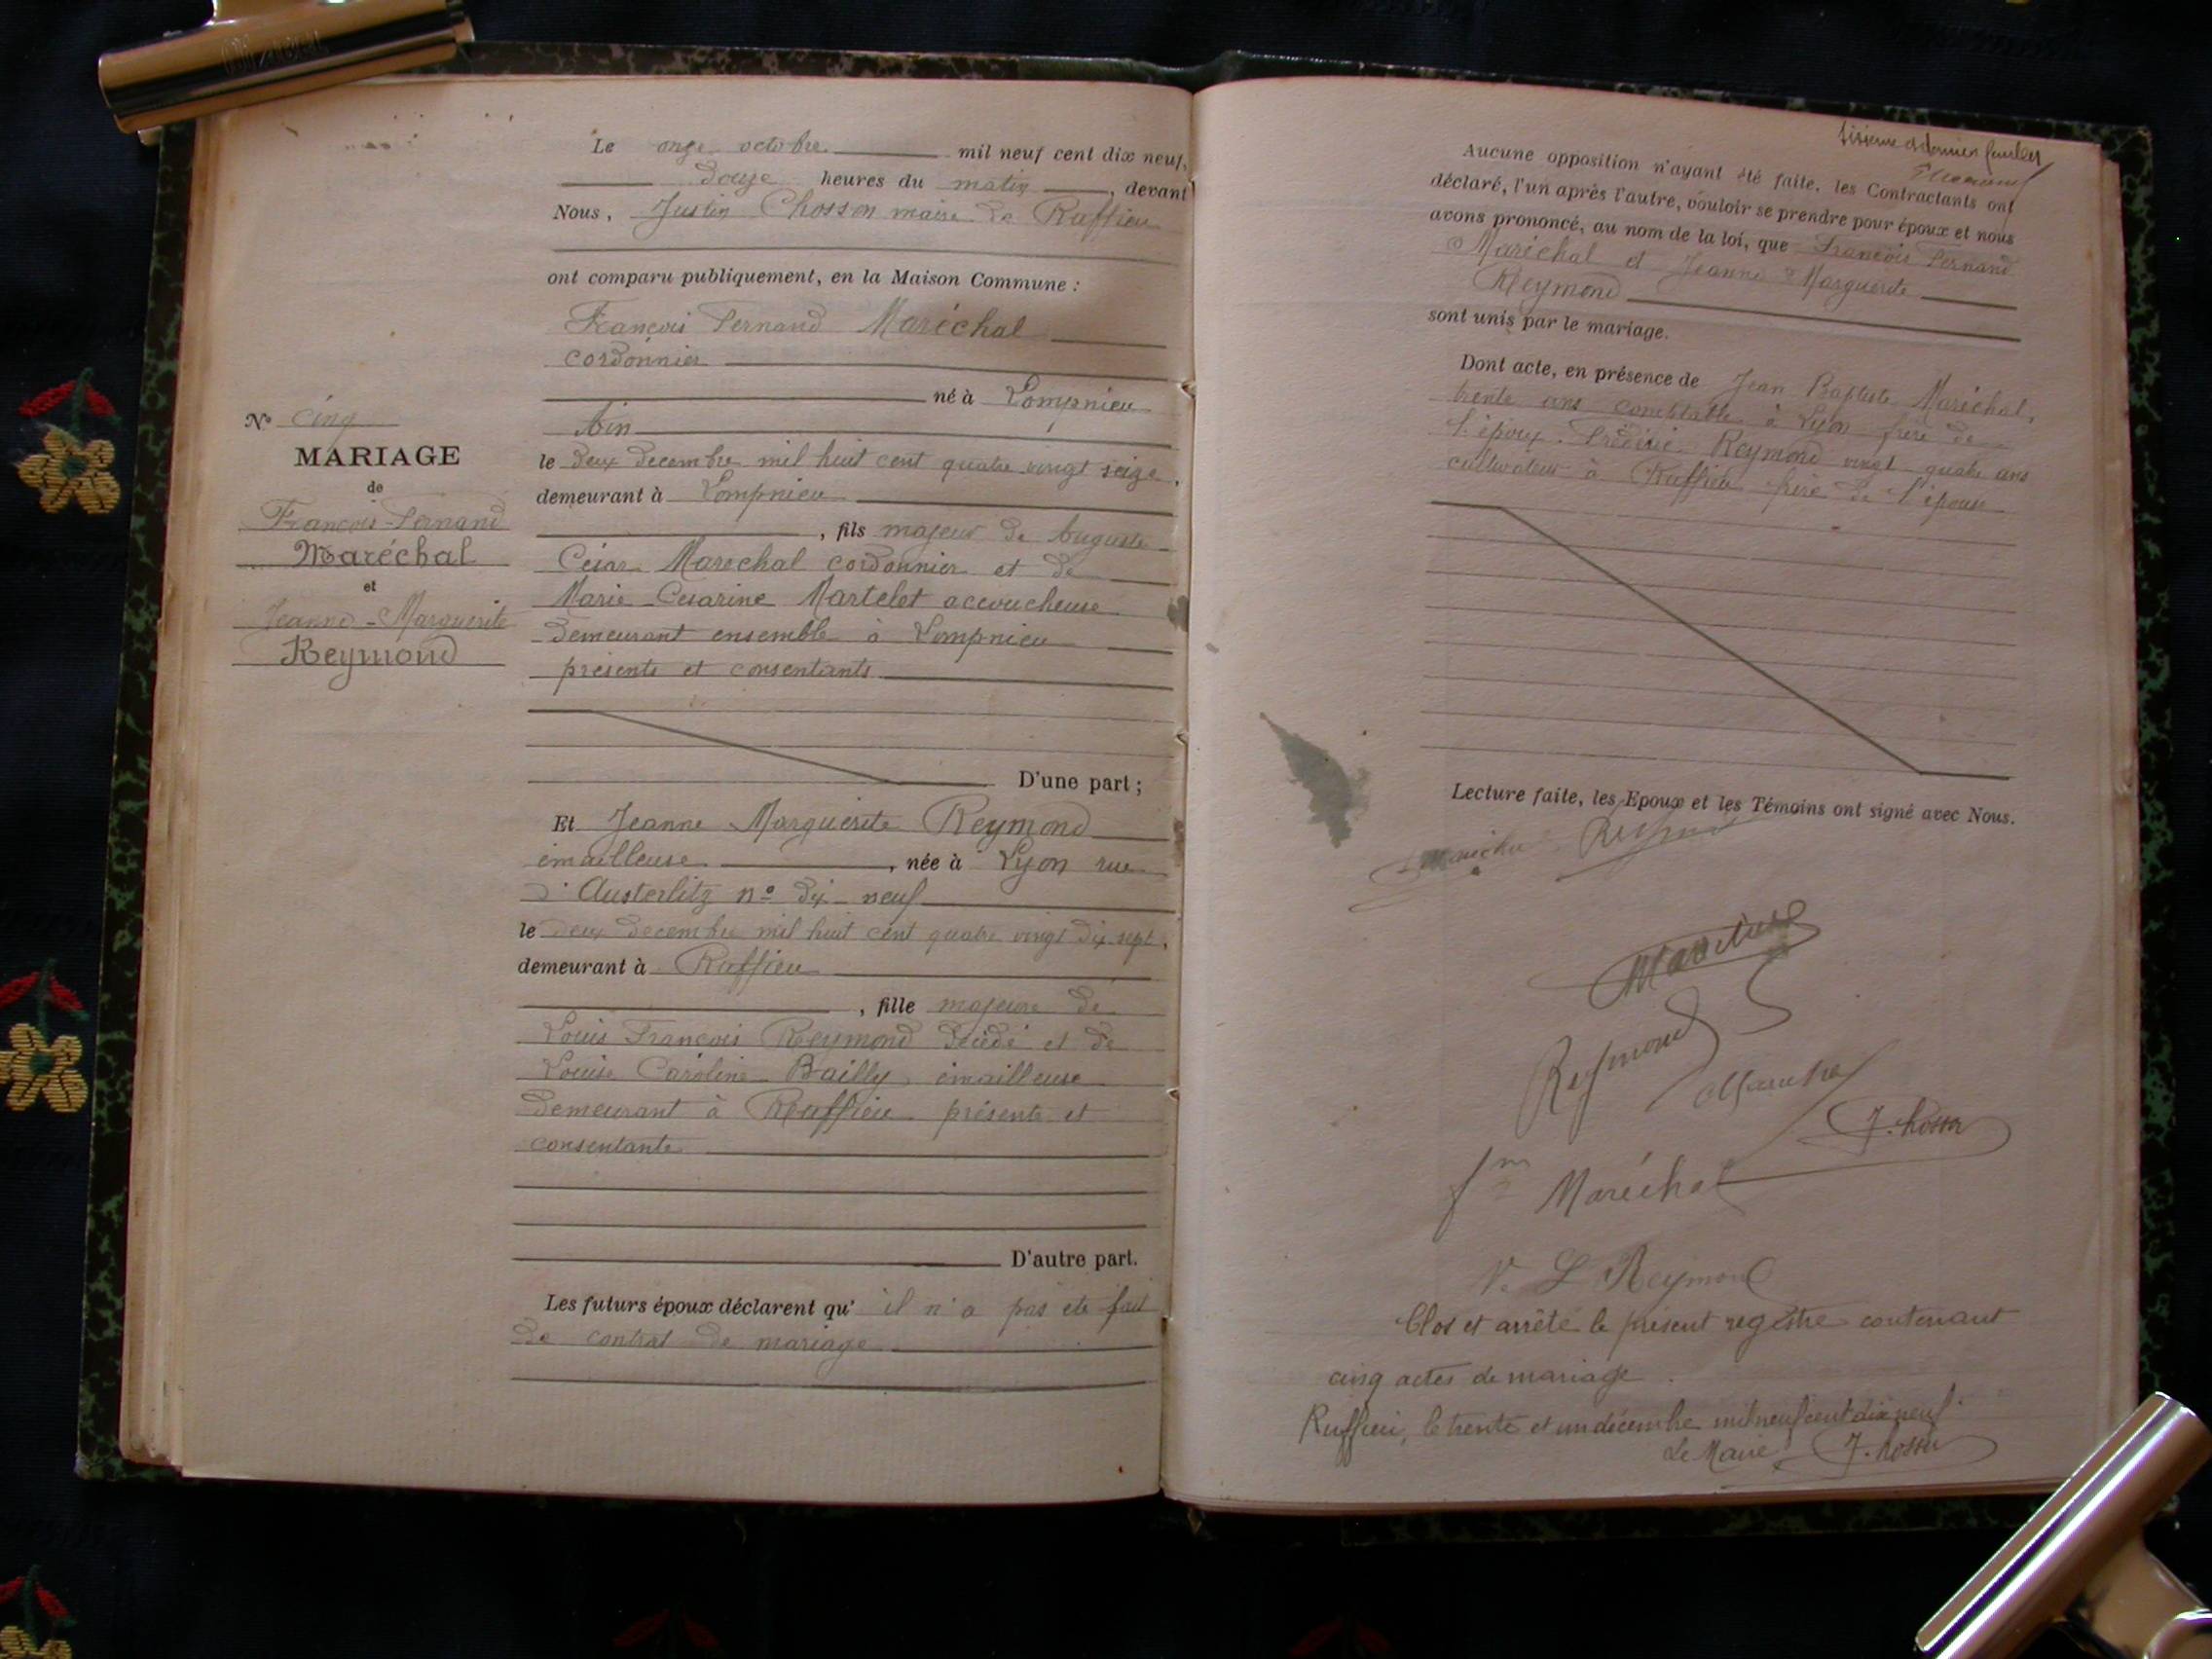 Le onze octobre mil neuf cent dix neuf,
douze heures du matin, devant
Nous, Justin Chosson maire de Ruffieu
ont comparu publiquement, en la Maison Commune :
François Fernand Maréchal
cordonnier
né à Lompnieu
Ain
le deux decembre mil huit cent quatre vingt seize,
demeurant à Lompnieu
, fils majeur de Auguste
César Marechal cordonnier et de
Marie Cesarine Martelet accoucheuse
demeurant ensemble à Lompnieu
présents et consentants
D'une part ;
Et Jeanne Marguerite Reymond
émailleuse, née à Lyon rue
d'Austerlitz nº dix-neuf
le deux decembre mil huit cent quatre vingt dix sept,
demeurant à Ruffieu
, fille majeure de
Louis François Reymond décédé et de
Louise Caroline Bailly, émailleuse
demeurant à Ruffieu présente et
consentante
D'autre part.
Les futurs époux déclarent qu' il n'a pas eté fait
de contrat de mariage
Nº cinq
MARIAGE
de
François-Fernand
Maréchal
et
Jeanne-Marguerite
Reymond
et dernier feuillet
Aucune opposition n'ayant été faite, les Contractants ont
déclaré, l'un après l'autre, vouloir se prendre pour époux et nous
avons prononcé, au nom de la loi, que François Fernand
Maréchal et Jeanne Marguerite
Reymond
sont unis par le mariage.
Dont acte, en présence de Jean Baptiste Maréchal,
trente ans comptable à Lyon frère de
l'époux. Frédéric Reymond vingt quatre ans
cultivateur à Ruffieu frère de l'épouse
Lecture faite, les Epoux et les Témoins ont signé avec Nous.
Reymond
Reymond
J. Chosson
Maréchal
Ve L Reymond
Clos et arrêté le présent registre contenant
cinq actes de mariage.
Ruffieu, le trente et un décembre mil neuf cent dix neuf.
Le Maire J. Chosson